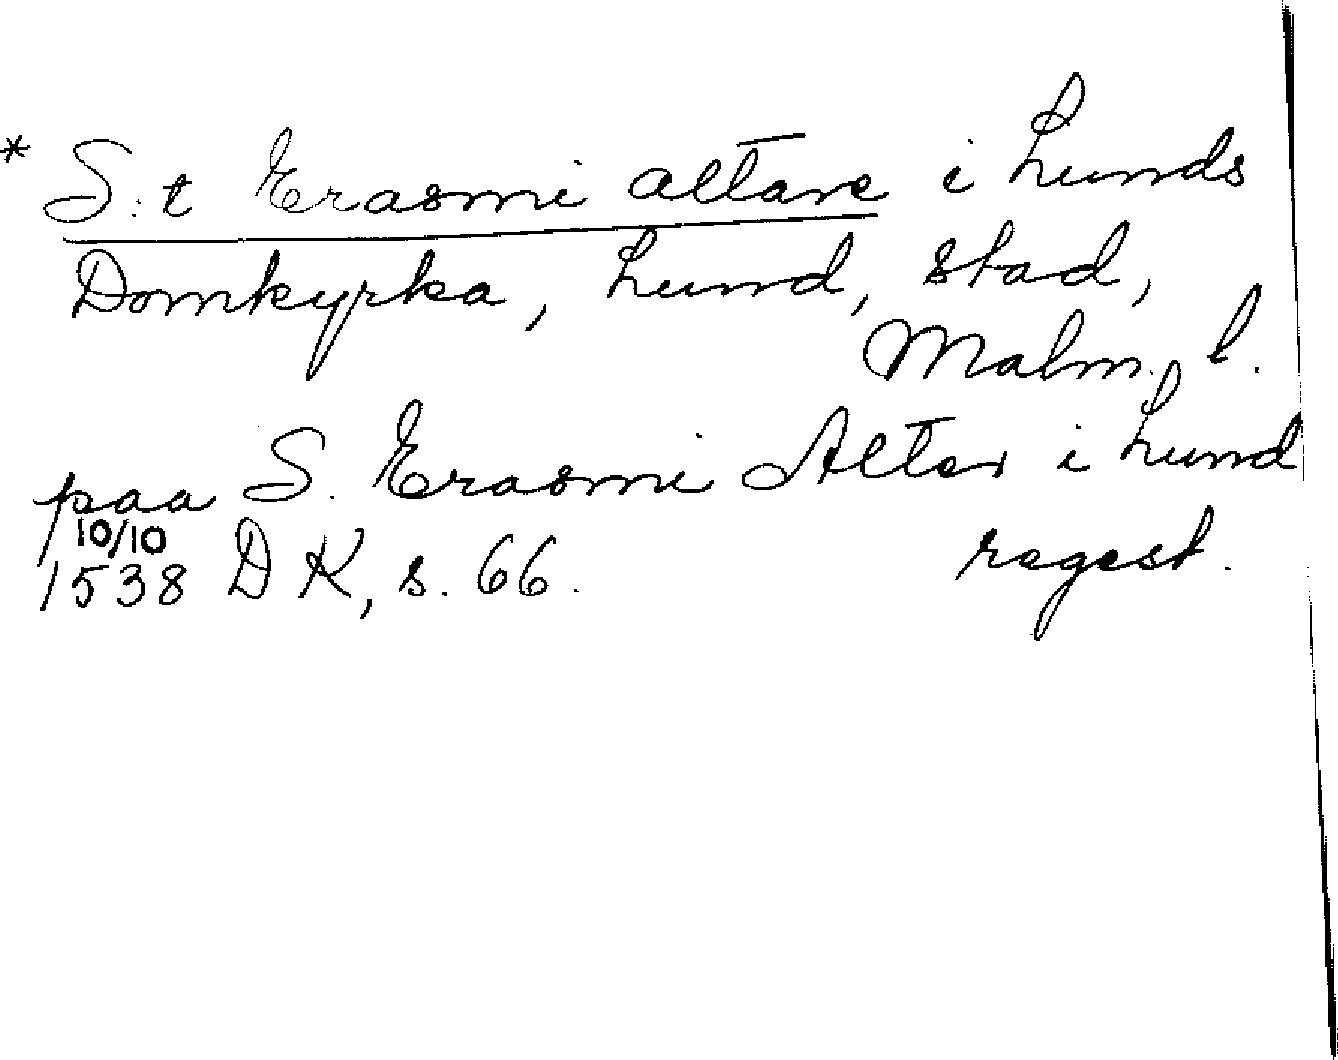 * S:t Erasmi altare i Lunds
Domkyrka, Lund, stad,
Malm. l.
paa S. Erasmi Alter i Lund
10/10
1538 DK, s. 66. regest.